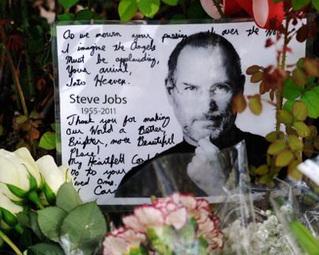 As we mourn your passing over the
I imagine the Angels
Must be applauding,
Your arrival,
Into Heaven.
Steve Jobs
1955-2011
Thank you for making
Our World a Better,
Brighter, more Beautiful
Place
My Heartfelt
to your